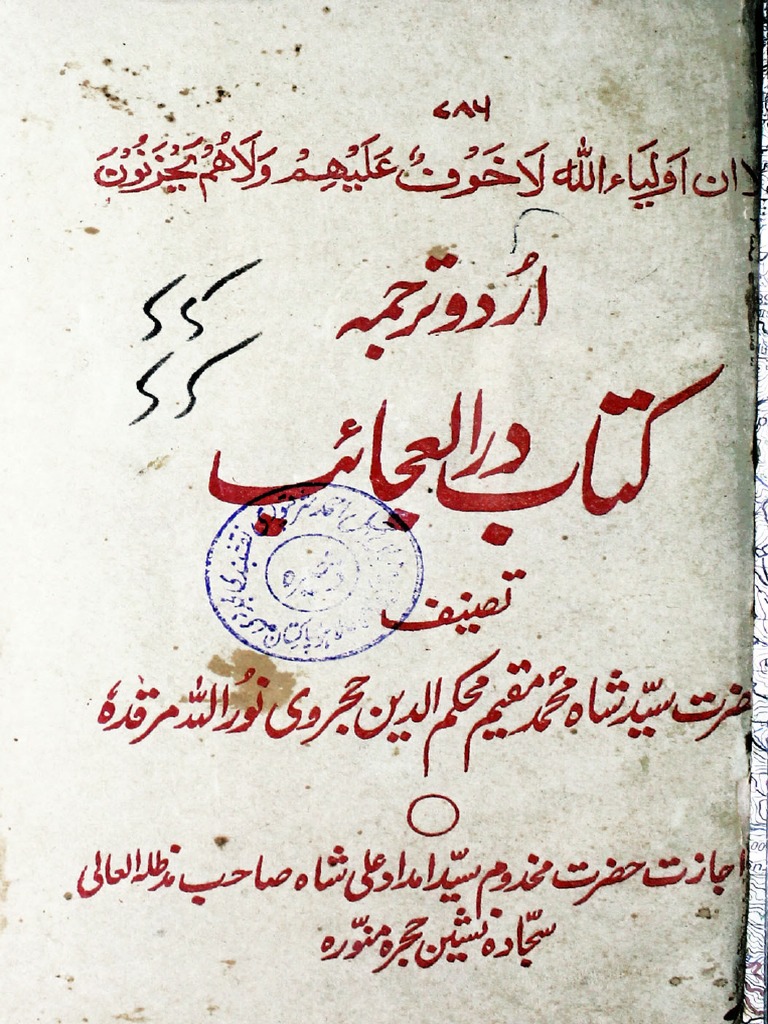 ۷۸۶
ان اَولِیَاء اللّٰه لَا خَوْفٌ عَلَیْهِمْ وَلَا هُمْ یَحْزَنُوْنَ
اُردو ترجمہ
کتاب در العجائب
تصنیف
حضرت سیّد شاہ محمّد مقیم محکم الدین حجروی نُور اللّٰه مرقدہٗ
اجازت حضرت مخدوم سیّد امداد علی شاہ صاحب مدظلہ العالی
سجّادہ نشین حجرہ منوّرہ